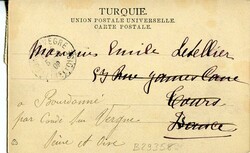 TURQUIE.
UNION POSTALE UNIVERSELLE.
CARTE POSTALE.
Monsieur Emile Letellier
59 Rue James Cane
Tours
France
à Bourdonné
par Condé sur Vesgre
Seine et Oise